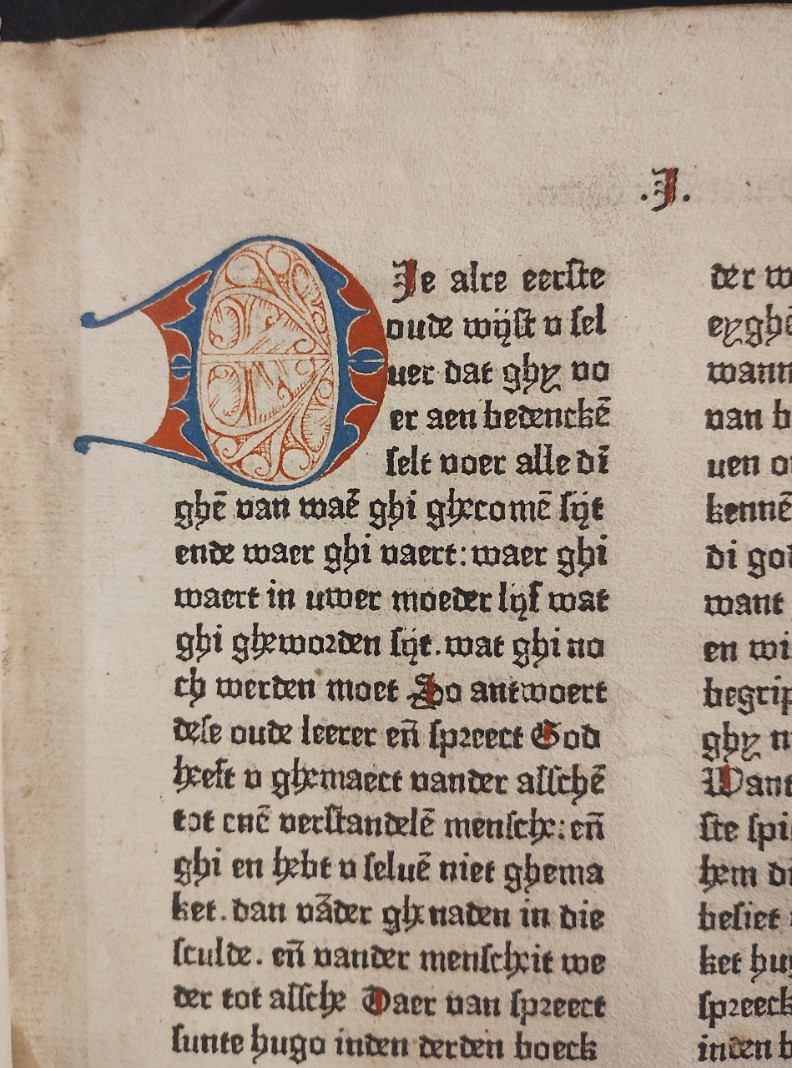 .I.
DIe alre eerste
oude wijst v sel
uer dat ghy vo
er aen bedenckē
selt voer alle dī
ghē van waē ghi ghecomē sijt
ende waer ghi vaert: waer ghi
waert in uwer moeder lijf wat
ghi gheworden sijt. wat ghi no
ch werden moet So antwoert
dese oude leerer eñ spreect God
heeft v ghemaect vander asschē
tot enē verstandelē mensche: eñ
ghi en hebt v seluē niet ghema
ket. dan vāder ghenaden in die
sculde. eñ vander menscheit we
der tot assche Daer van spreect
sunte hugo inden derden boeck
der w
eyghē
wann
van b
uen o
kennē
di god
want
en wi
begrip
ghy n
Want
ste spi
hem di
besiet
ket hu
spreeck
inden b